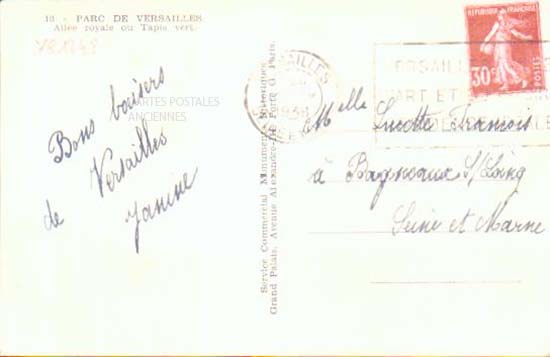 13 - PARC DE VERSAILLES
Allée royale ou Tapis vert.
Bons baisers
de Versailles
Janine
CARTES POSTALES
ANCIENNES
Service Commercial Monuments Historiques
Grand Palais, Avenue Alexandre-III Porte G Paris.
RÉPUBLIQUE FRANÇAISE
30c
POSTES
VERSAILLES
ART ET
Melle Lucette Francois
à Bagneaux S/Loing
Seine et Marne